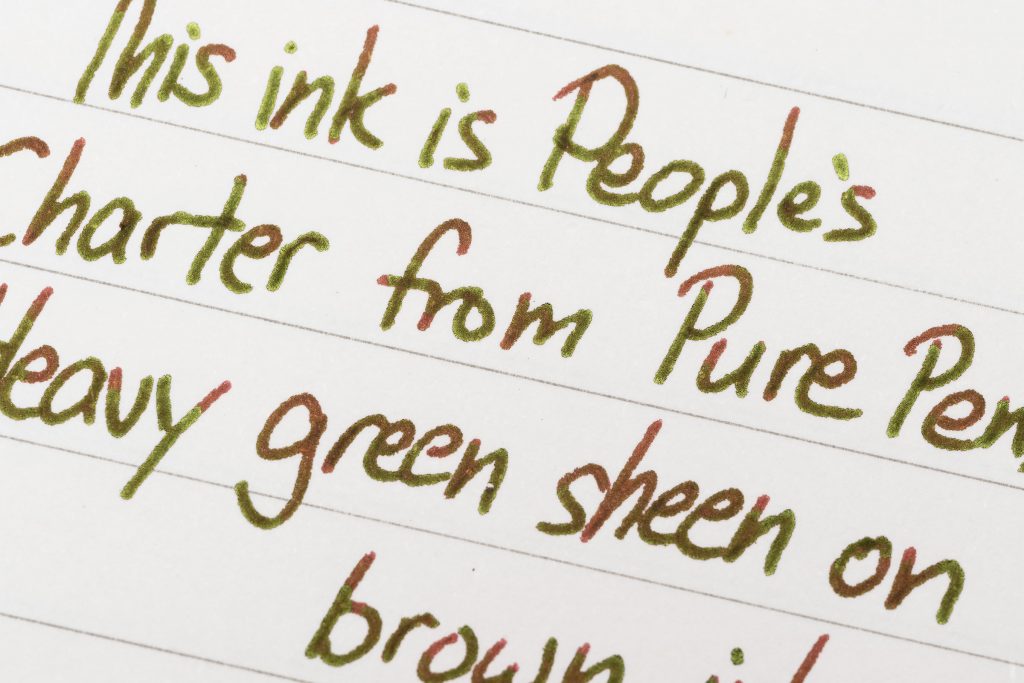 This ink is People's
Charter from Pure Pen
Heavy green sheen on
brown